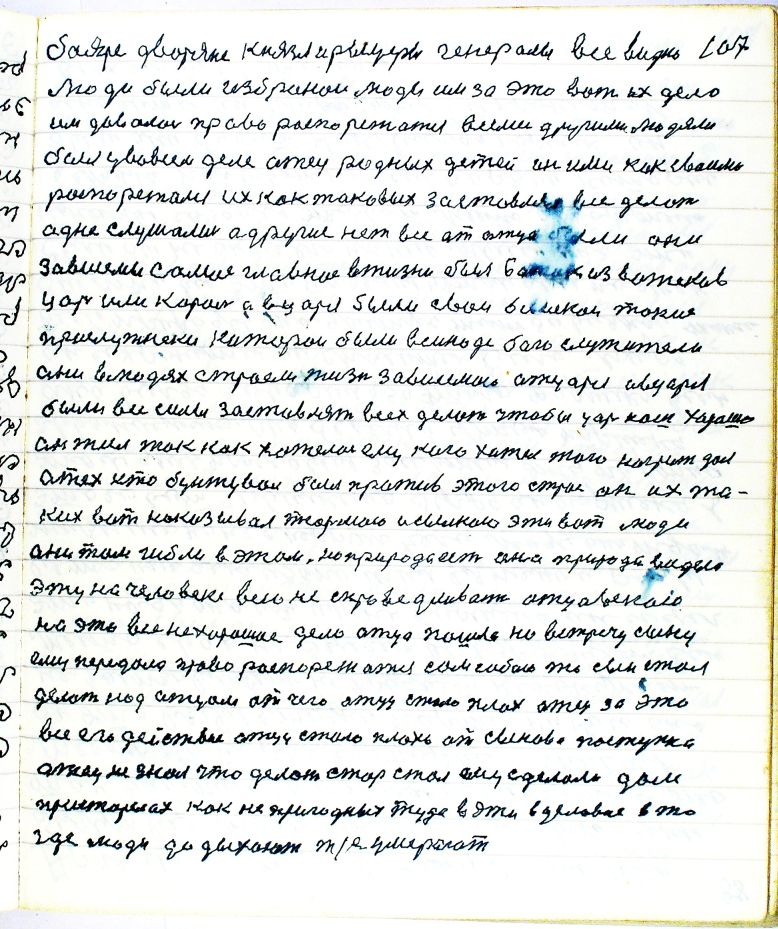 бояре дворяне князя рыцери генерали все видно 107
люди были избраной люди им за это вот их дело
им давалои право распорежатся всеми другими людями
была у вовсем деле атец родных детей он ими как своими
распорежался их как таковых заставлял все делат
адне слушалис а другие нет все ат атца были они
зависемы самое главное в жизни была из вожеков
цар или карол а в царя были свои такие
прислужнеки каторои были всиноде бого служители
ани в людях строели жизн зависемою атцаря а в царя
были все силы заставлят всех делат чтобы цар наш харашо
ан жил так как хателос ему кого хател того награждал
а тех кто бунтувал был против этого строя он их та-
ких вот наказывал тюрмою и силкою эти вот люди
ани там гибли в этом. но природа ест она природа видела
эту на человеке всю не справедливаст атцавскаю
на это все нехорошое дело атца пошла на встречу сыну
ему передала право распорежатся сам собою то сын стал
делат над атцом от чего атцу стало плох атец за это
все его действие атцу стало плохо от сыновова поступка
атец не знал что делат стар стал ему сделали дом
пристарелах как не пригодных туда в эти в
где люди до дыхают т/е умерают